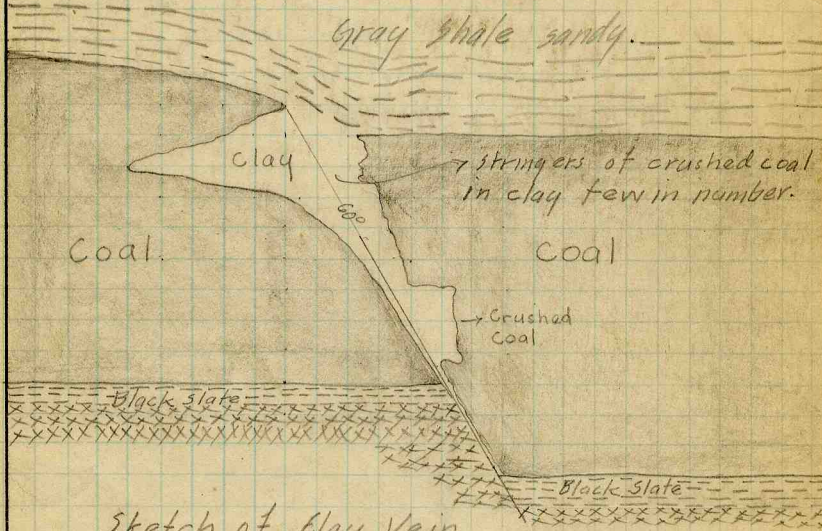 Gray Shale sandy.
Clay
stringers of crushed coal
in clay few in number.
60°
Coal.
Coal
Crushed
Coal
Black Slate
Black Slate
Sketch of Clay Vein